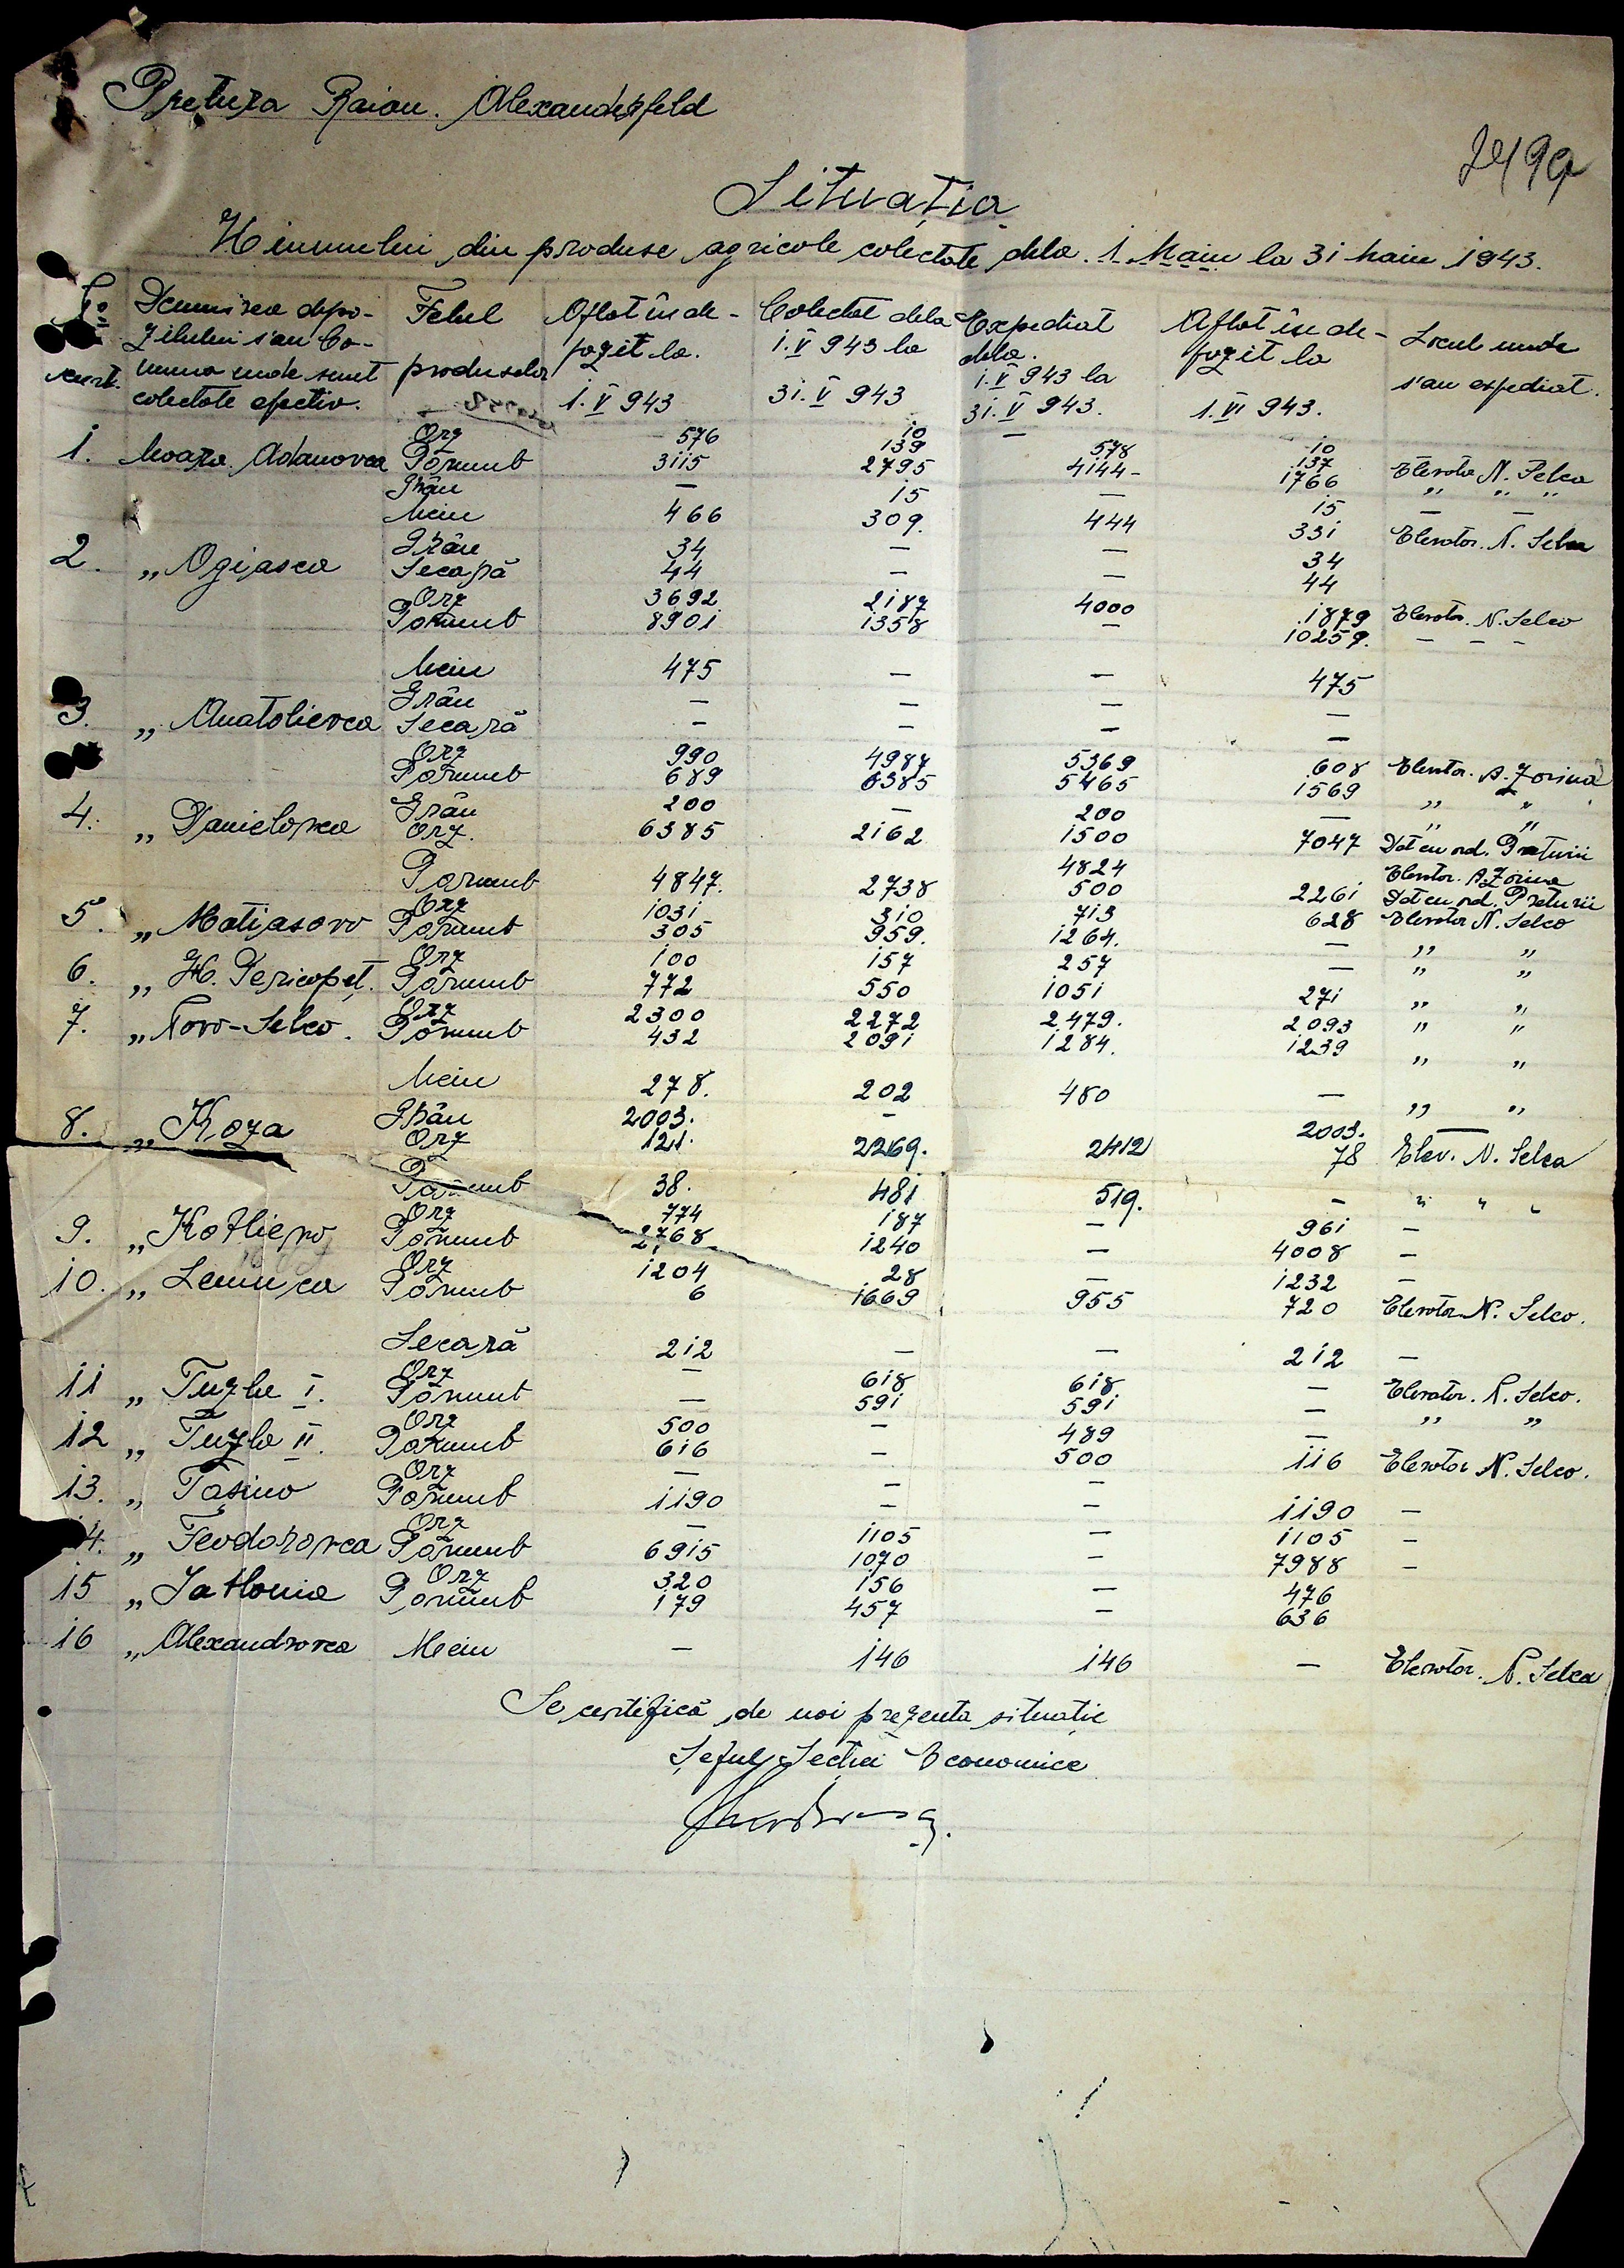 Pretura Raion. Alexanderfeld
2499
Situația
Uiumului din produse agricole colectate dela. 1. Maiu la 31 Maiu 1943.
No curt. | Denumirea depozitului s'au Comuna unde sunt colectate efectiv. | Felul produselor | Aflat în depozit la. 1. V 943 | Colectat dela 1. V 943 la 31. V 943 | Expediat dela. 1. V 943 la 31. V 943. | Aflat în depozit la 1. VI 943. | Locul unde s'au expediat.
1. Moara Adamovca Orz 576 139 578 137 Elevator N. Selca
Porumb 3115 2795 4144- 1766 " " "
Grâu — 15 — 15 — —
Meiu 466 309. 444 331 Elevator. N. Selca
2. „ Ogijasca Grâu 34 — — 34
Secară 44 — — 44
Orz 3692 2187 4000 1879 Elevator. N. Selco
Porumb 8901 1358 — 10259. — — —
Meiu 475 — — 475
3. „ Anatolievca Grâu — — — —
Secară — — — —
Orz 990 4987 5369 608 Elevator. A. Zorina
Porumb 689 6385 5465 1569 " "
4. „ Danielovca Grâu 200 — 200 — " "
Orz. 6385 2162 1500 7047 Dat cu ord. Preturii
Porumb 4847. 2738 4824 Elevator. A. Zorina
500 2261 Dat cu ord. Preturii
5. „ Matijasovo Orz 1031 310 713 628 Elevator N. Selco
Porumb 305 959. 1264. — " "
6. „ H. Pericopeț. Orz 100 157 257 — " "
Porumb 772 550 1051 271 " "
7. „ Novo-Selco. Orz 2300 2272 2479. 2093 " "
Porumb 432 2091 1284. 1239 " "
Meiu 278. 202 480 — " "
8. „ Koza Grâu 2003. — 2003. —
Orz 121. 2269. 2412 78 Elev. N. Selca
Porumb 38. 481 519. — " " "
9. „ Kotlievo Orz 774 187 — 961 —
Porumb 2768 1240 — 4008 —
10. „ Orz 1204 28 — 1232 —
Porumb 6 1669 955 720 Elevator N. Selco.
Secară 212 — — 212 —
11 „ Tuzle I. Orz — 618 618 — Elevator. N. Selco.
Porumb — 591 591 — " "
12 „ Tuzle II. Orz 500 — 489 —
Porumb 616 — 500 116 Elevator N. Selco.
13. „ Tașino Orz — — —
Porumb 1190 — — 1190 —
14. „ Feodorovca Orz — 1105 — 1105 —
Porumb 6915 1070 — 7988 —
15 „ Iatlonia Orz 320 156 — 476
Porumb 179 457 — 636
16 „ Alexandrovca Meiu — 146 146 — Elevator. N. Selca
Se certifică de noi prezenta situație
Șeful Secției Economice